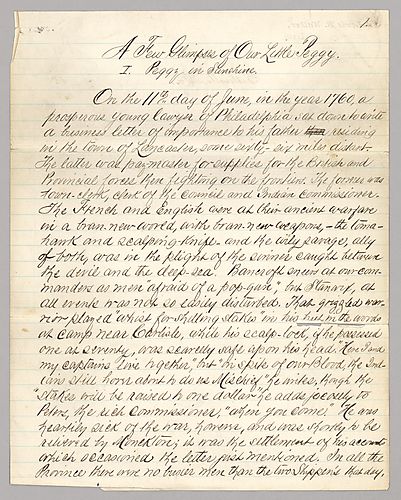 1.
A Few Glimpses of Our Little Peggy.
I. Peggy in Sunshine.
On the 11th day of June, in the year 1760, a
prosperous young lawyer of Philadelphia sat down to write
a business letter of importance to his father residing
in the town of Lancaster, some sixty-six miles distant.
The latter was paymaster for supplies for the British and
Provincial forces then fighting on the frontiers. The former was
town-clerk, clerk of the Council and Indian commissioner.
The French and English were at their ancient warfare
in a bran-new world, with bran-new weapons,- the toma-
hawk and scalping-knife- and the wily savage, ally
of both, was in the plight of the sinner caught between
the devil and the deep sea. Bancroft sneers at our com-
manders as men "afraid of a pop-gun", but Stanwix, at
all events was not so easily disturbed. That grizzled war-
rior played "whist for shilling stakes" in his hut in the woods
at camp near Carlisle, while his scalp-lock, if he possessed
one at seventy, was scarcely safe upon his head. "Here I and
my captains live together," but "in spite of our Blood, the In-
dians still hover about & do us Mischief," he writes, though the
"stakes will be raised to one dollar" he adds jocosely to
Peters, the rich commissioner, "when you come." He was
heartily sick of the war, however, and was shortly to be
relieved by Monckton; it was the settlement of his accounts
which occasioned the letter just mentioned. In all the
Province there were no busier men than the two Shippens that day,